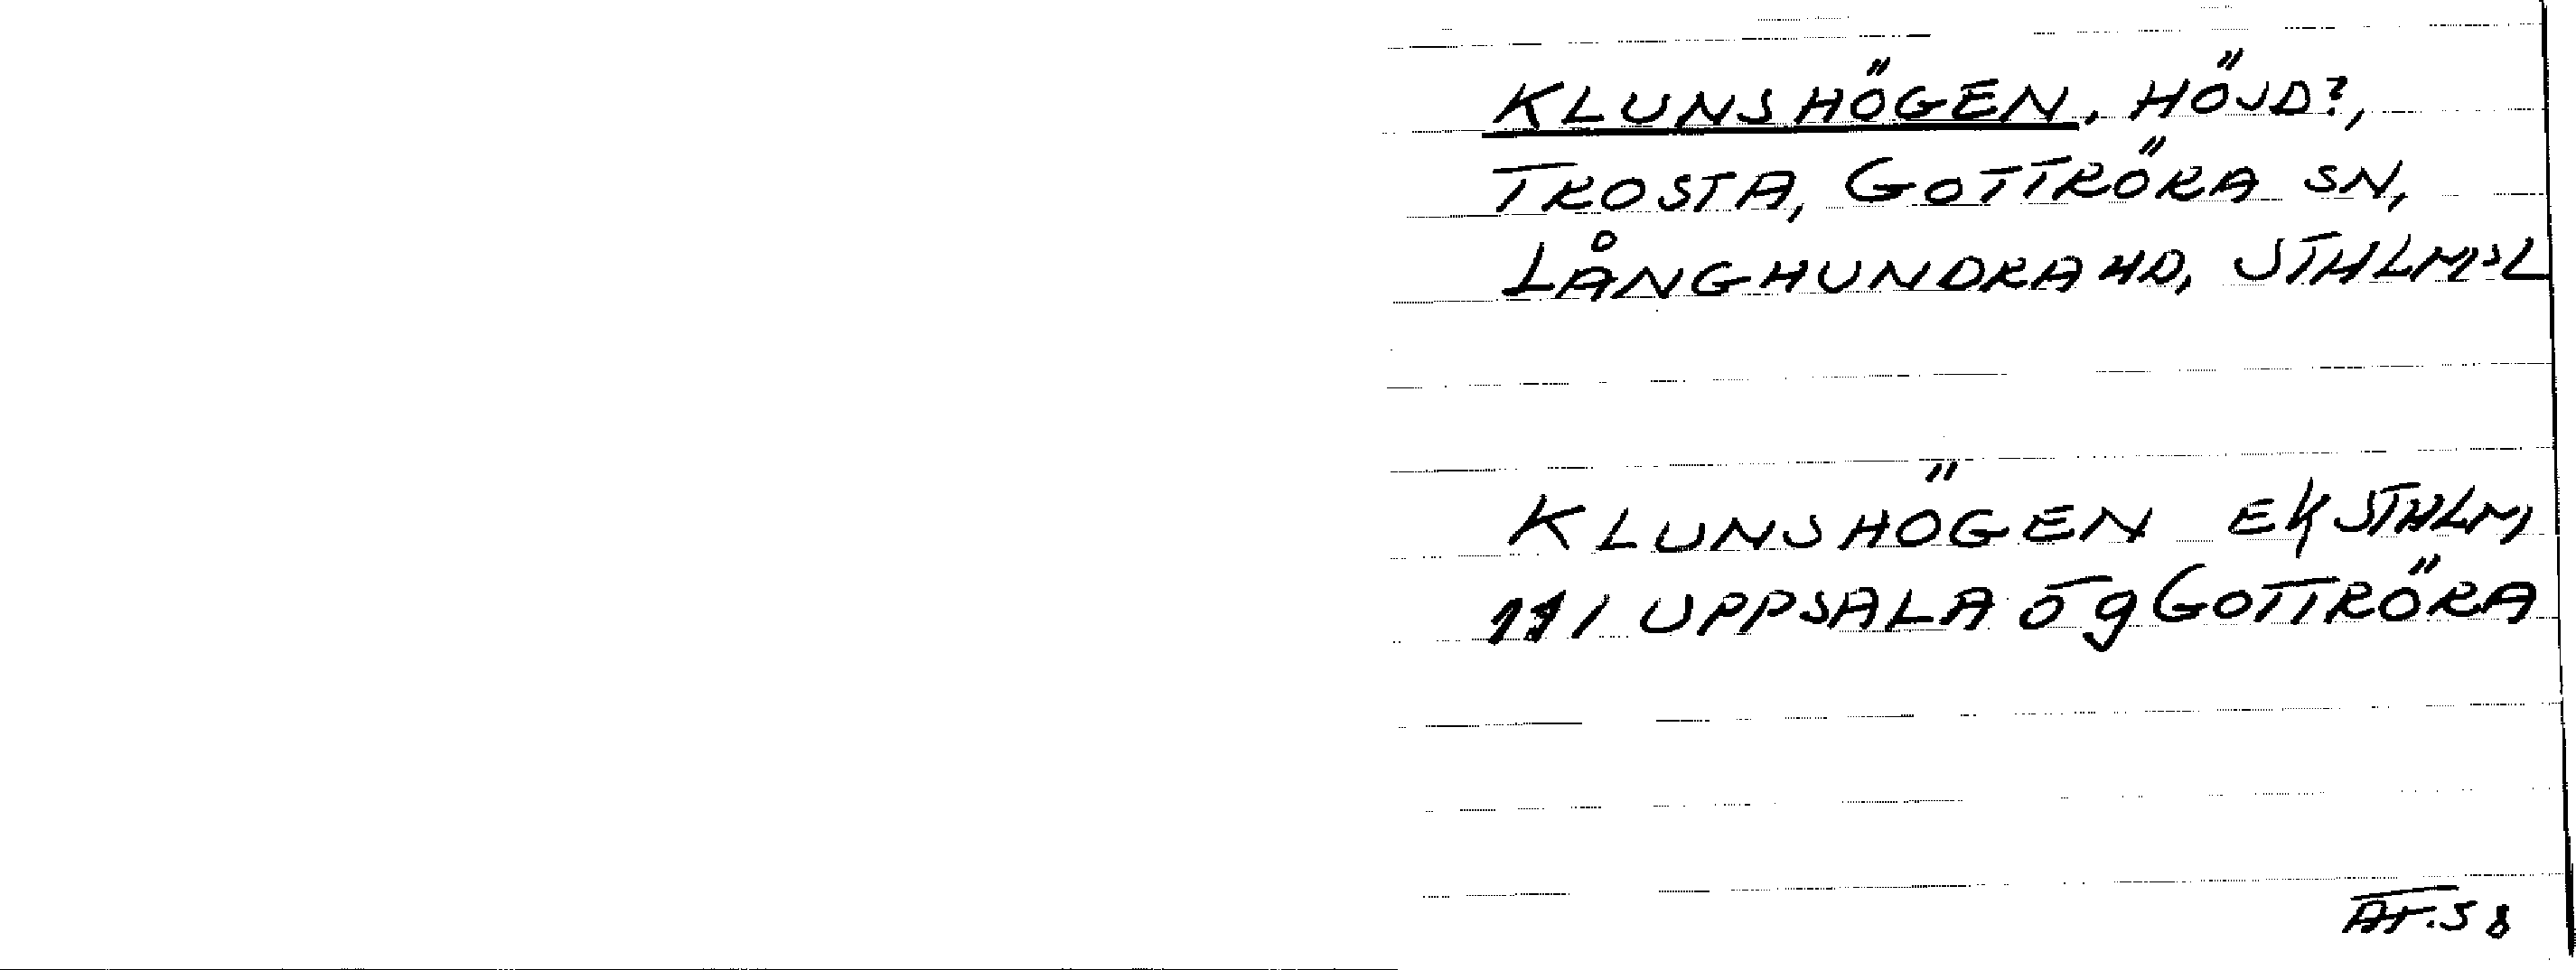 KLUNSHÖGEN, HÖJD?,
TROSTA, GOTTRÖRA SN,
LÅNGHUNDRA HD, STHLMSL
KLUNSHÖGEN EK STHLM
111 UPPSALA ög GOTTRÖRA
AT.58